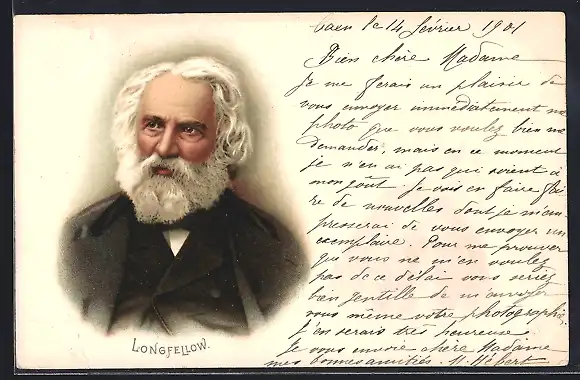 Caen le 14 février 1901
Bien chère Madame
Je me ferais un plaisir de
vous envoyer immédiatement ma
photo que vous voulez bien me
demander, mais en ce moment
je n'en ai pas qui soient à
mon goût. Je vais en faire fai
re de nouvelles dont je m'em
presserai de vous envoyer un
exemplaire. Pour me prouver
que vous ne m'en voulez
pas de ce délai vous seriez
bien gentille de m'envoyer
vous même votre photographie
j'en serais très heureuse.
Je vous envoie chère Madame
mes bonnes amitiés M. Hébert
LONGFELLOW.